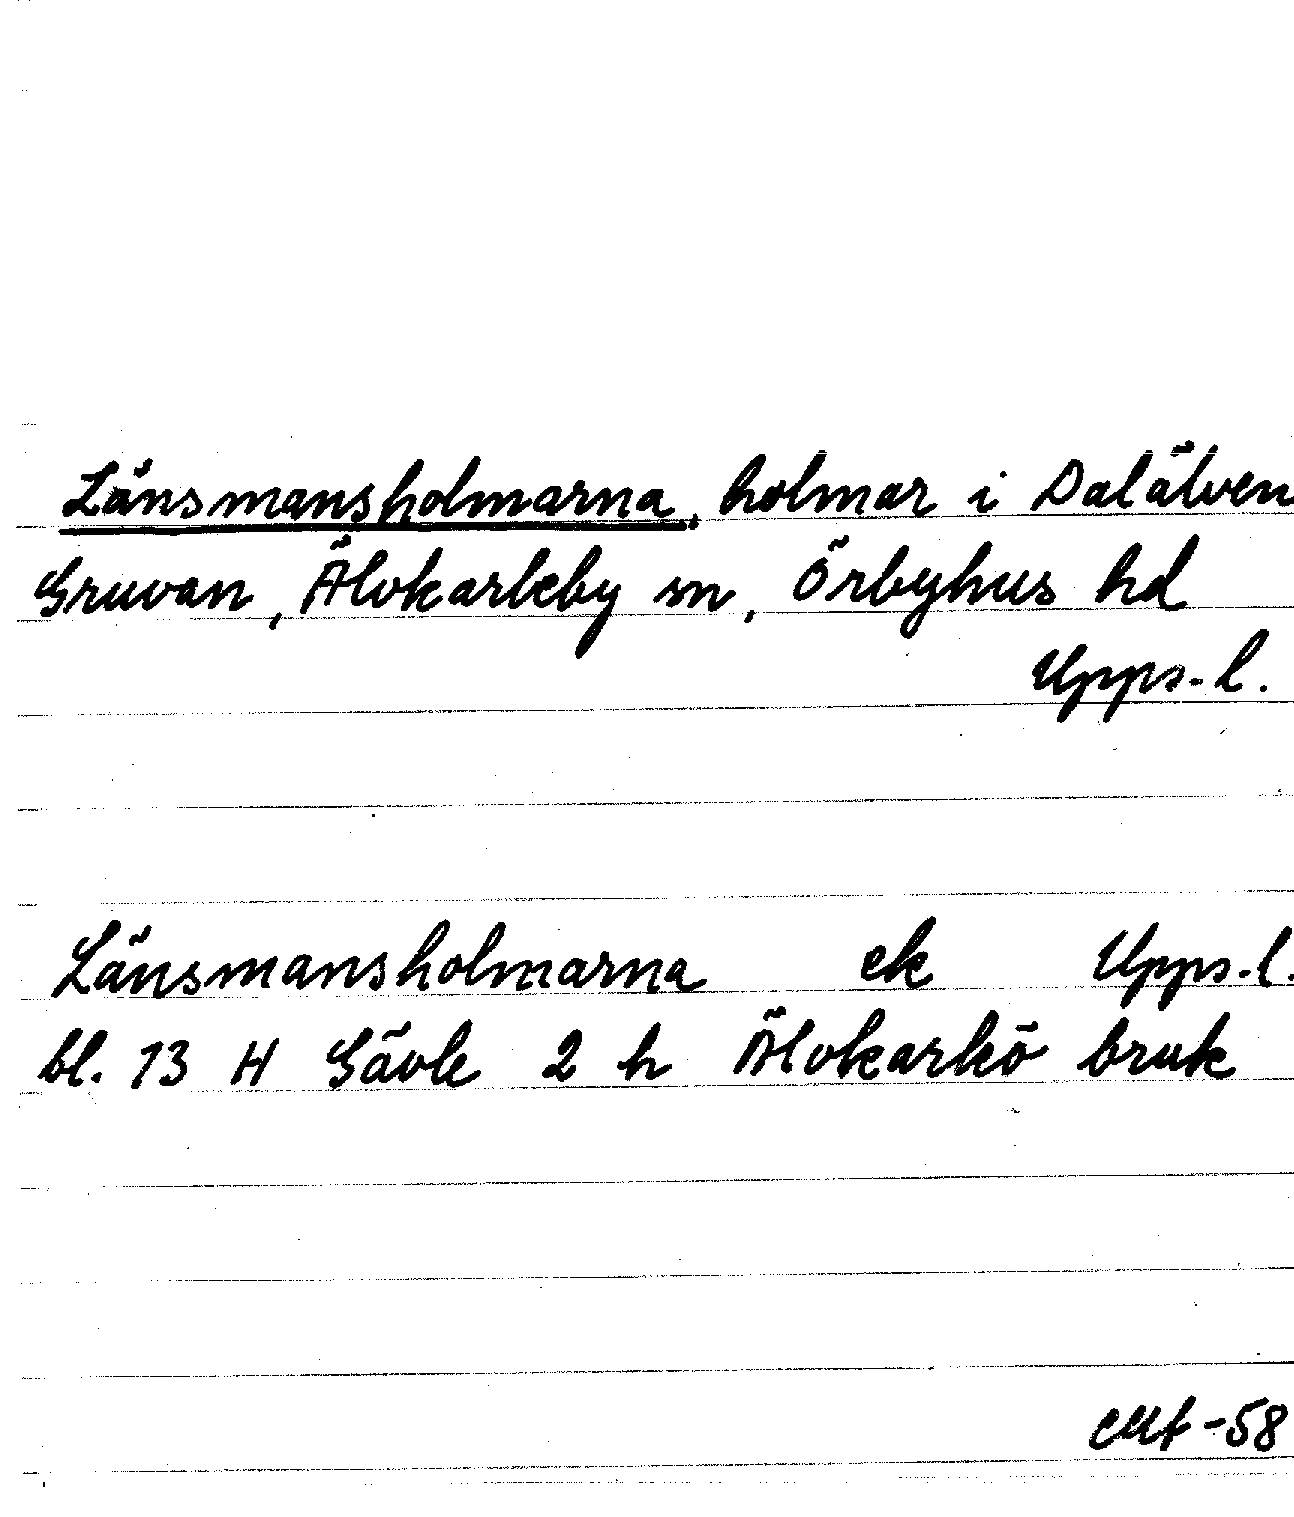 Länsmansholmarna, holmar i Dalälven
Gruvan, Älvkarleby sn, Örbyhus hd
Upps-l.
Länsmansholmarna ek Upps-l.
bl. 13 H Gävle 2 h Älvkarkö bruk
-58